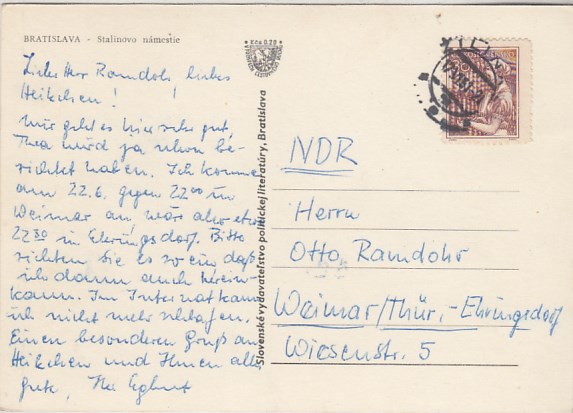 BRATISLAVA - Stalinovo námestie
Kčs 0,20
Lieber Herr Ramdohr, liebes
Heikchen!
Mir geht es hier sehr gut,
Thea wird ja schon be-
richtet haben. Ich komme
am 22.6. gegen 22 00 in
Weimar an, wäre aber etwa
22 30 in Ehringsdorf. Bitte
richten Sie es so ein daß
ich dann auch herein-
kann. Im Internat kann
ich nicht mehr schlafen.
Einen besonderen Gruß an
Heikchen und Ihnen alles
Gute, Ihr
Slovenské vydavateľstvo politickej literatúry, Bratislava
NDR
Herrn
Otto Ramdohr
Weimar/Thür.-Ehringsdorf
Wiesenstr. 5